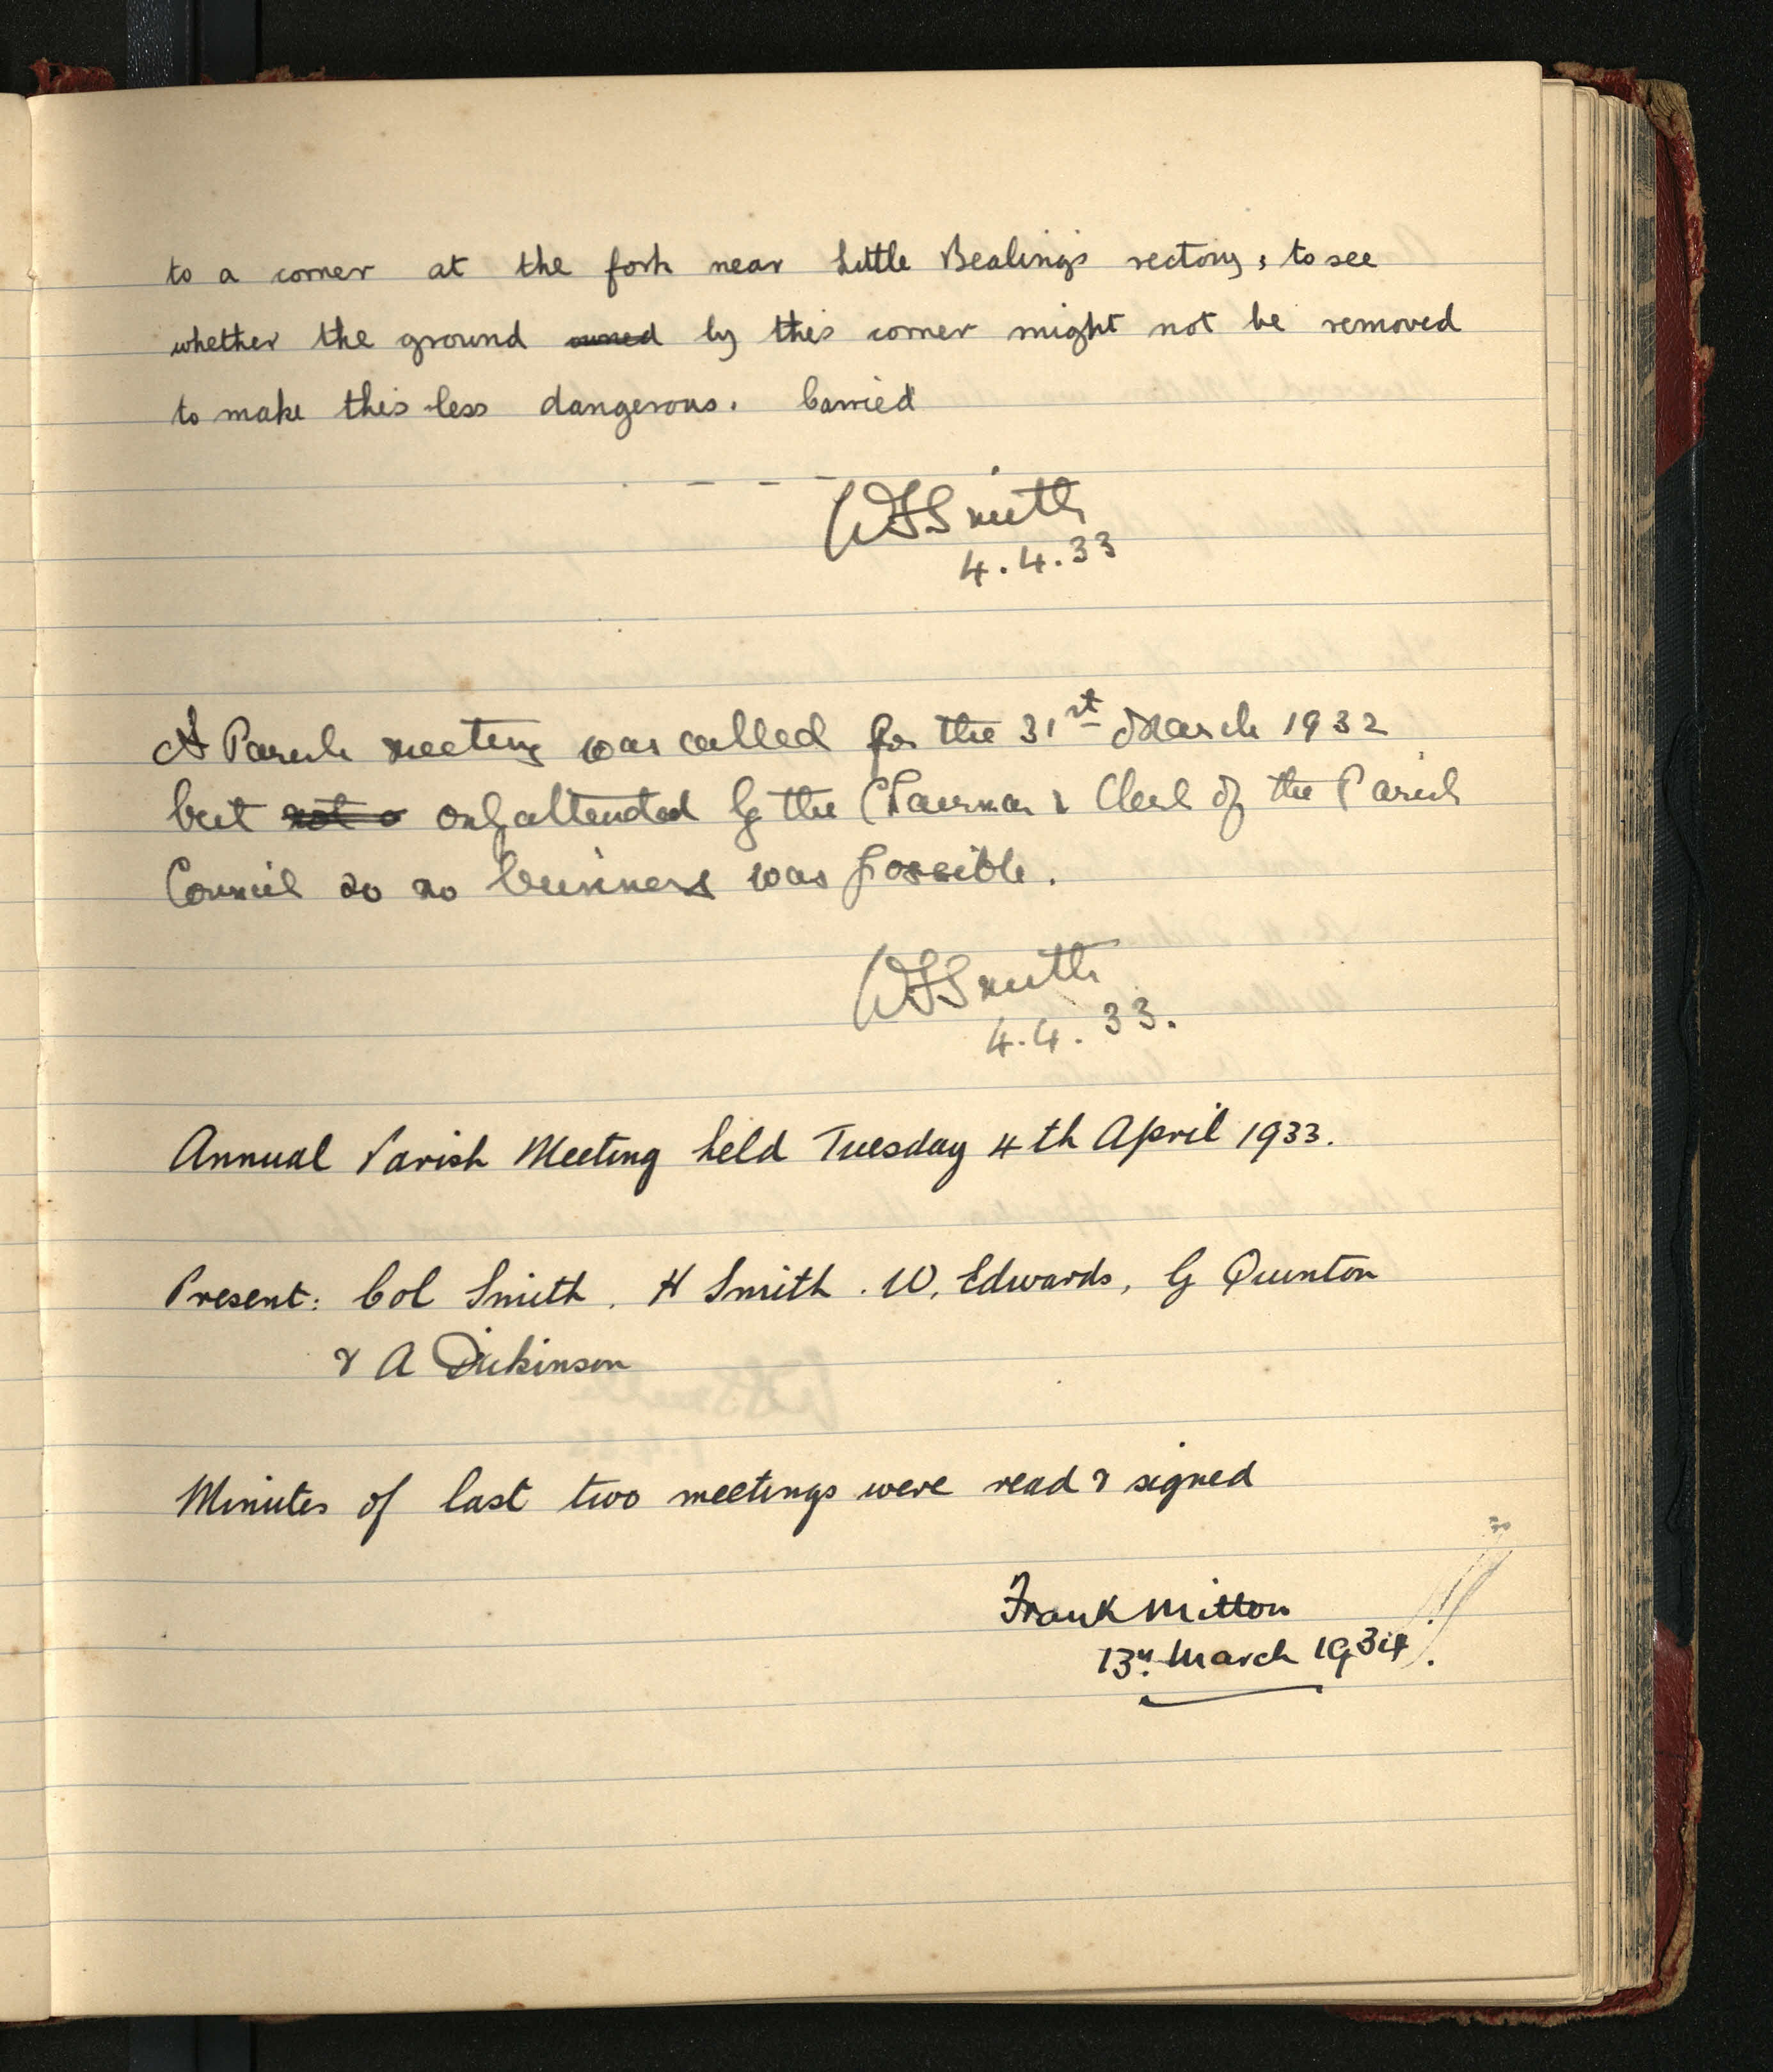 to a corner at the fork near Little Bealings rectory, to see
whether the ground owned by this corner might not be removed
to make this less dangerous. Carried
WFSmith
4.4.33
A Parish meeting was called for the 31st March 1932
but not a only attended by the Chairman & Clerk of the Parish
Council so no business was possible.
WFSmith
4.4.33.
Annual Parish Meeting held Tuesday 4th April 1933.
Present: Col Smith, H Smith. W. Edwards, G Quinton
& A Dickinson
Minutes of last two meetings were read & signed
Frank Mitton
13th March 1934.